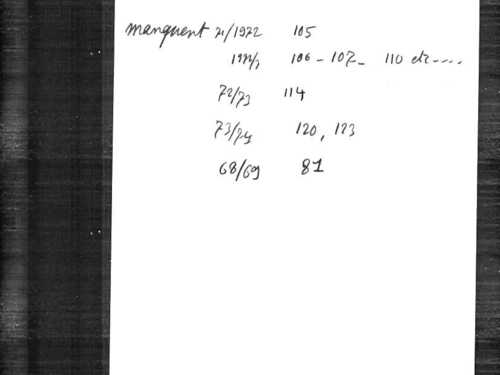 manquent 71/1972 105
106 - 107 - 110 etc....
72/73 114
73/74 120, 123
68/69 81